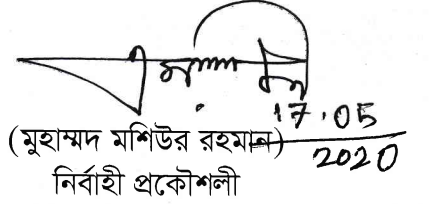 17.05
2020
(মুহাম্মদ মশিউর রহমান)
নির্বাহী প্রকৌশলী